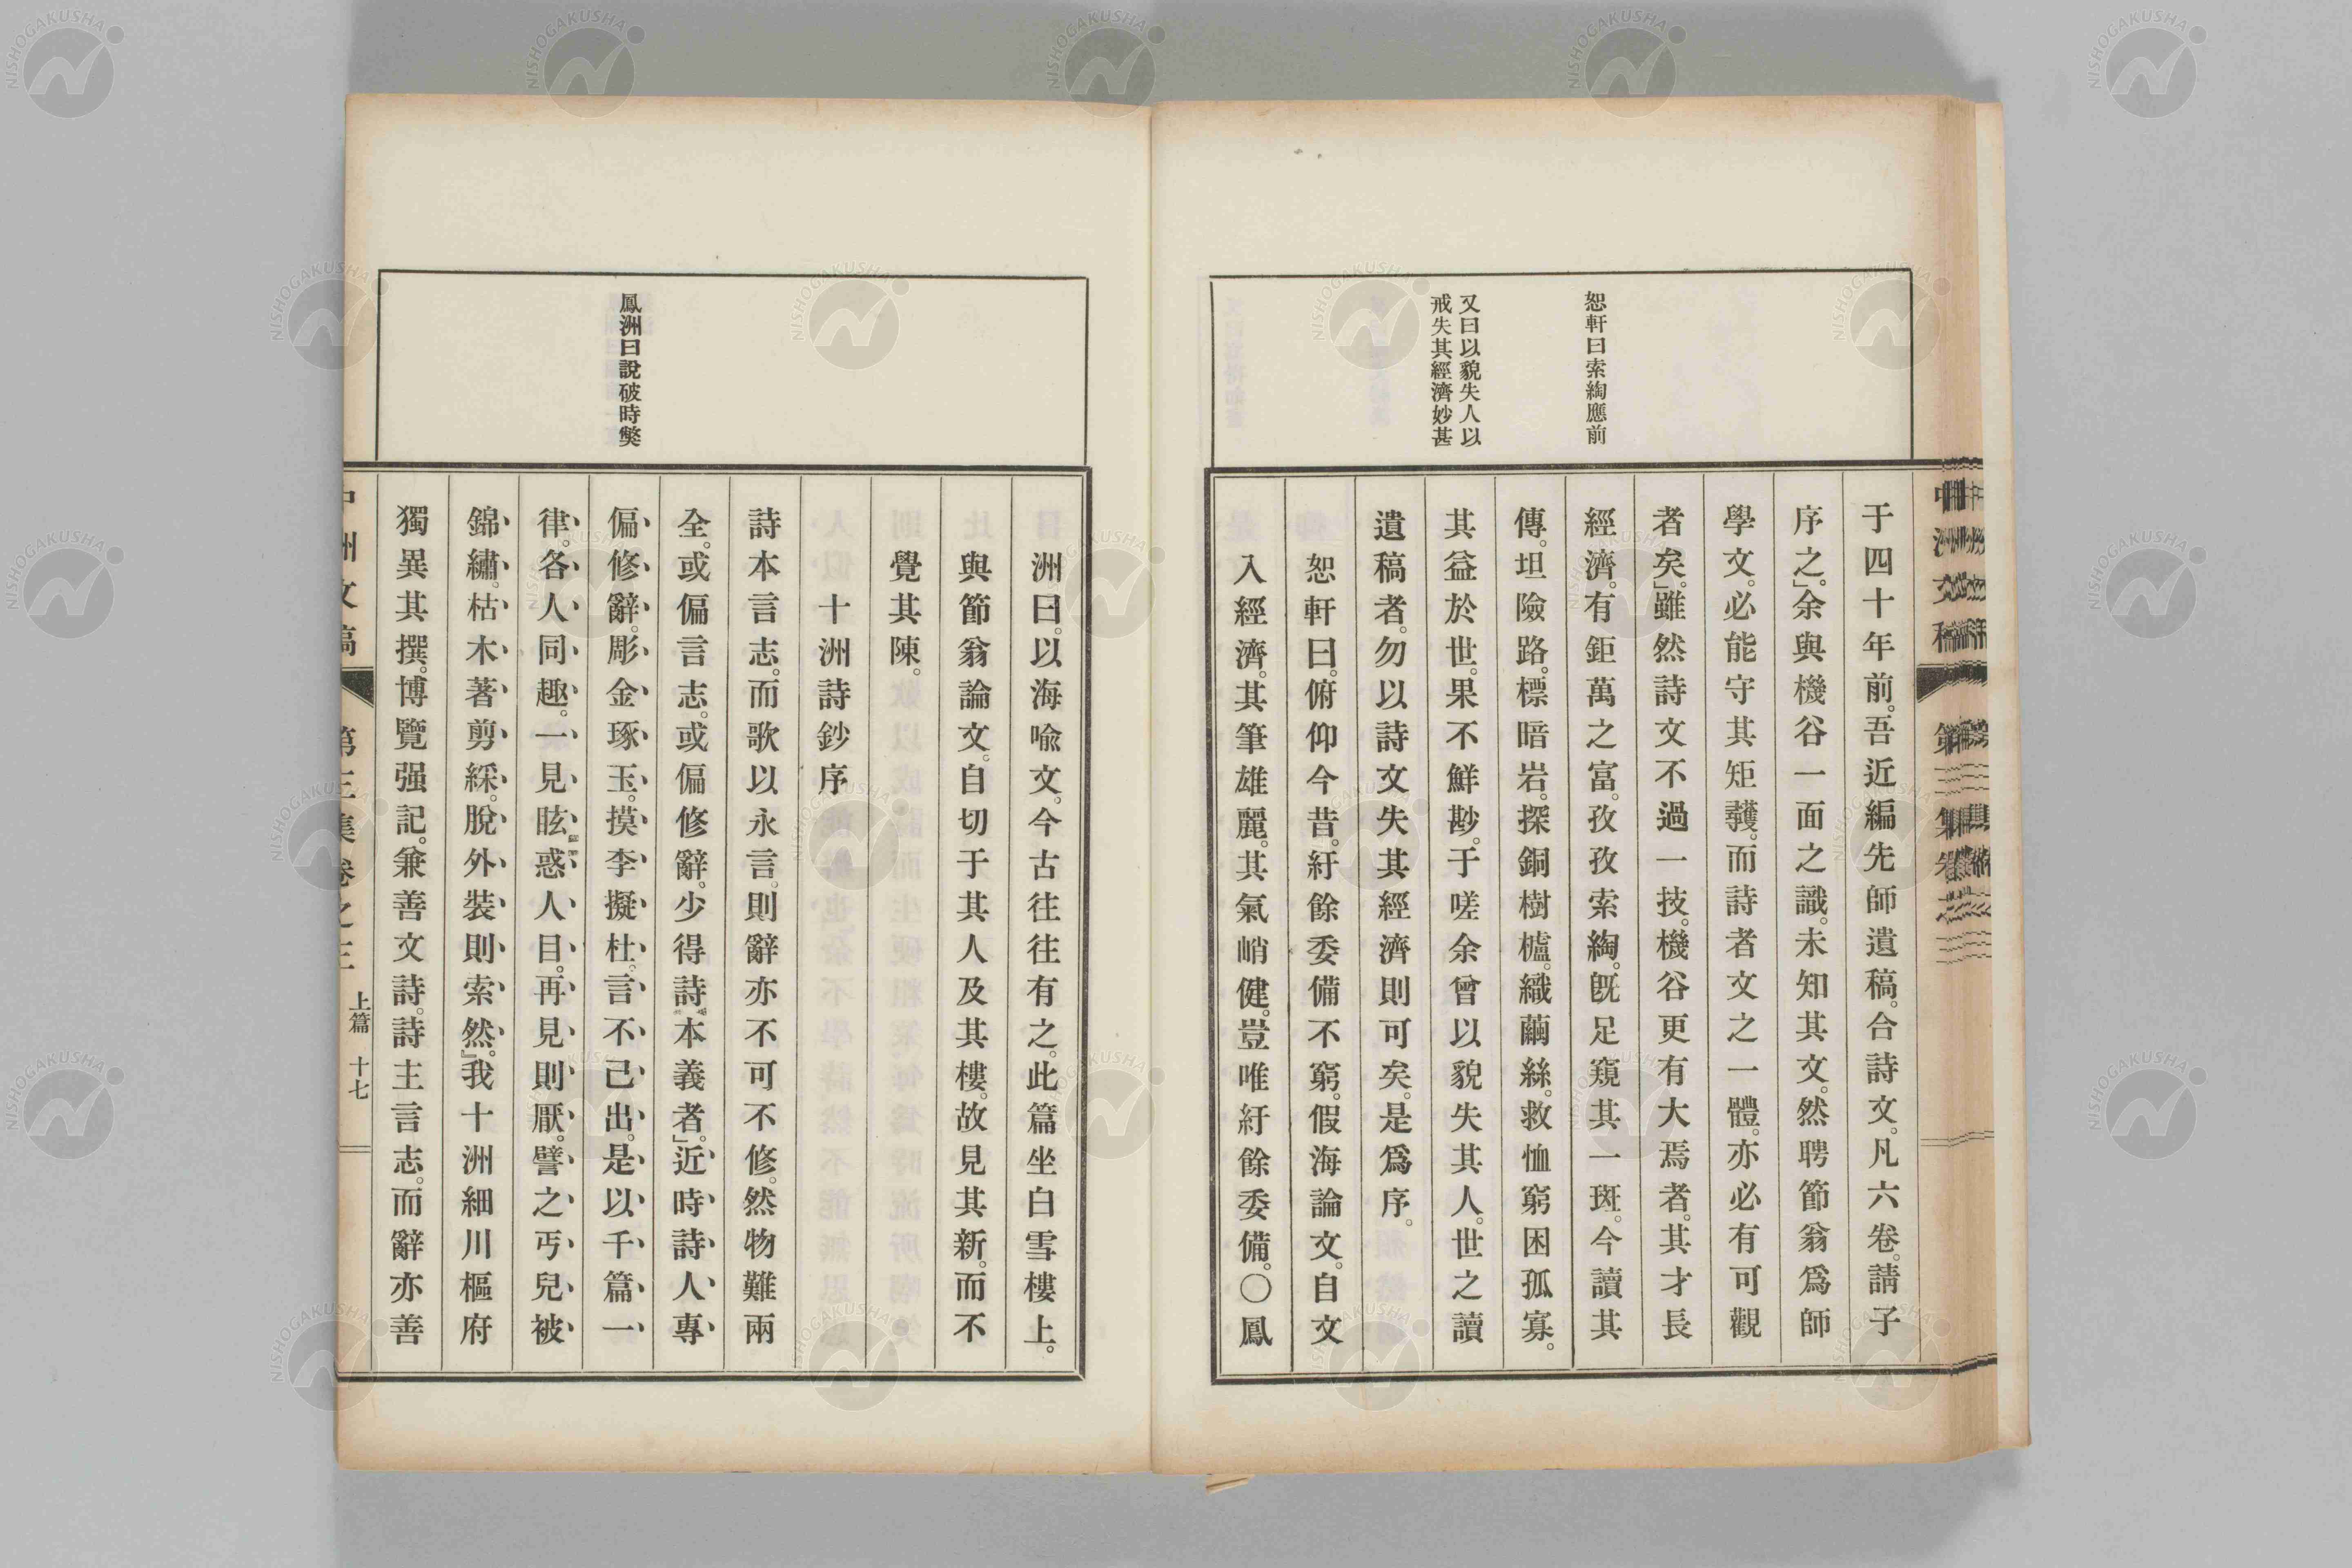 恕軒曰索綯應前
又曰以貌失人以
戒失其經濟妙甚
于四十年前。吾近編先師遺稿。合詩文。凡六卷。請子
序之。」余與機谷一面之識。未知其文。然聘節翁爲師
學文。必能守其矩矱。而詩者文之一體。亦必有可觀
者矣。」雖然詩文不過一技。機谷更有大焉者。其才長
經濟。有鉅萬之富。孜孜索綯。既足窺其一斑。今讀其
傳。坦險路。標暗岩。探銅樹櫨。織繭絲。救恤窮困孤寡。
其益於世。果不鮮尠。于嗟余曾以貌失其人。世之讀
遺稿者。勿以詩文失其經濟則可矣。是爲序。
恕軒曰。俯仰今昔。紆餘委備不窮。假海論文。自文
入經濟。其筆雄麗。其氣峭健。豈唯紆餘委備。〇鳳
鳳洲曰說破時獘
洲曰。以海喩文。今古往往有之。此篇坐白雪樓上。
與節翁論文。自切于其人及其樓。故見其新。而不
覺其陳。
十洲詩鈔序
詩本言志。而歌以永言。則辭亦不可不修。然物難兩
全。或偏言志。或偏修辭。少得詩本義者。」近時詩人專
偏修辭。彫金琢玉。摸李擬杜。言不己出。是以千篇一
律。各人同趣。一見眩惑人目。再見則厭。譬之丐兒被
錦繡。枯木著剪綵。脫外裝則索然。」我十洲細川樞府
獨異其撰。博覽强記。兼善文詩。詩主言志。而辭亦善
中洲文稿 第三集卷之三 上篇 十七